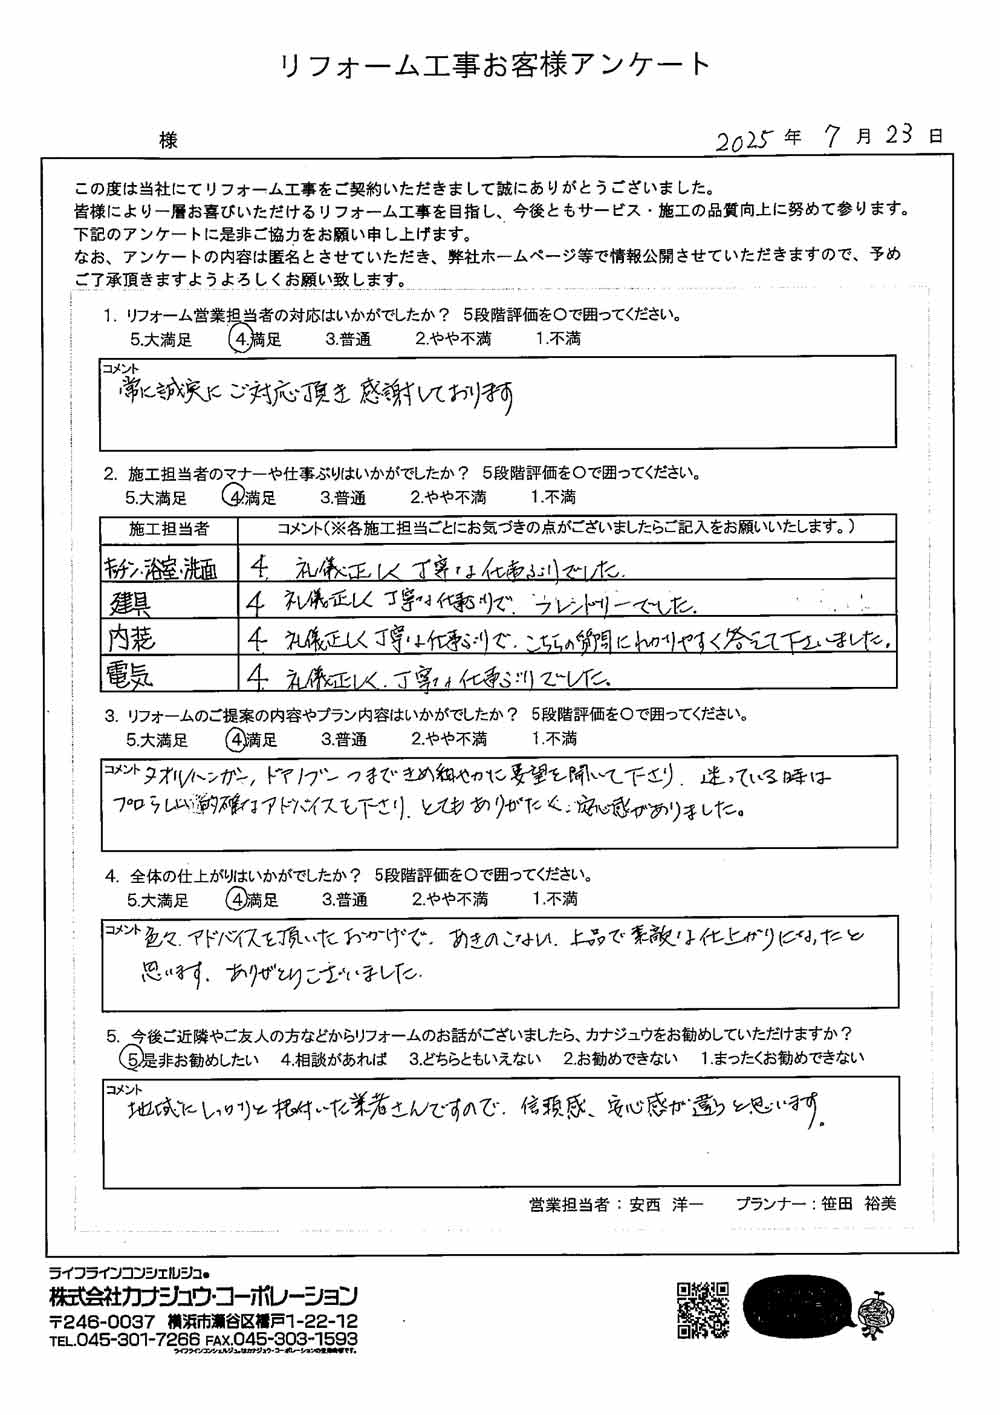 リフォーム工事お客様アンケート
様 2025年 7月 23日
この度は当社にてリフォーム工事をご契約いただきまして誠にありがとうございました。
皆様により一層お喜びいただけるリフォーム工事を目指し、今後ともサービス・施工の品質向上に努めて参ります。
下記のアンケートに是非ご協力をお願い申し上げます。
なお、アンケートの内容は匿名とさせていただき、弊社ホームページ等で情報公開させていただきますので、予め
ご了承頂きますようよろしくお願い致します。
1. リフォーム営業担当者の対応はいかがでしたか? 5段階評価を〇で囲ってください。
5.大満足 4.満足 3.普通 2.やや不満 1.不満
コメント
常に誠実にご対応頂き感謝しております
2. 施工担当者のマナーや仕事ぶりはいかがでしたか? 5段階評価を〇で囲ってください。
5.大満足 4.満足 3.普通 2.やや不満 1.不満
施工担当者 コメント(※各施工担当ごとにお気づきの点がございましたらご記入をお願いいたします。)
キッチン・浴室・洗面 4. 礼儀正しく丁寧な仕事ぶりでした.
建具 4 礼儀正しく丁寧な仕事ぶりで、フレンドリーでした.
内装 4 礼儀正しく丁寧な仕事ぶりで、こちらの質問にわかりやすく答えて下さいました。
電気 4. 礼儀正しく、丁寧な仕事ぶりでした。
3. リフォームのご提案の内容やプラン内容はいかがでしたか? 5段階評価を〇で囲ってください。
5.大満足 4.満足 3.普通 2.やや不満 1.不満
コメント タオルハンガー, ドアノブ一つまできめ細やかに要望を聞いて下さり、迷っている時は
プロらしい的確なアドバイスも下さり、とてもありがたく、安心感がありました。
4. 全体の仕上がりはいかがでしたか? 5段階評価を〇で囲ってください。
5.大満足 4.満足 3.普通 2.やや不満 1.不満
コメント 色々、アドバイスを頂いたおかげで、あきのこない、上品で素敵な仕上がりになったと
思います。ありがとうございました.
5. 今後ご近隣やご友人の方などからリフォームのお話がございましたら、カナジュウをお勧めしていただけますか?
5.是非お勧めしたい 4.相談があれば 3.どちらともいえない 2.お勧めできない 1.まったくお勧めできない
コメント
地域にしっかりと根付いた業者さんですので、信頼感、安心感が違うと思います。
営業担当者:安西 洋一 プランナー:笹田 裕美
ライフラインコンシェルジュ®
株式会社カナジュウ・コーポレーション
〒246-0037 横浜市瀬谷区橋戸1-22-12
TEL.045-301-7266 FAX.045-303-1593
ライフラインコンシェルジュ®はカナジュウ・コーポレーションの登録商標です。